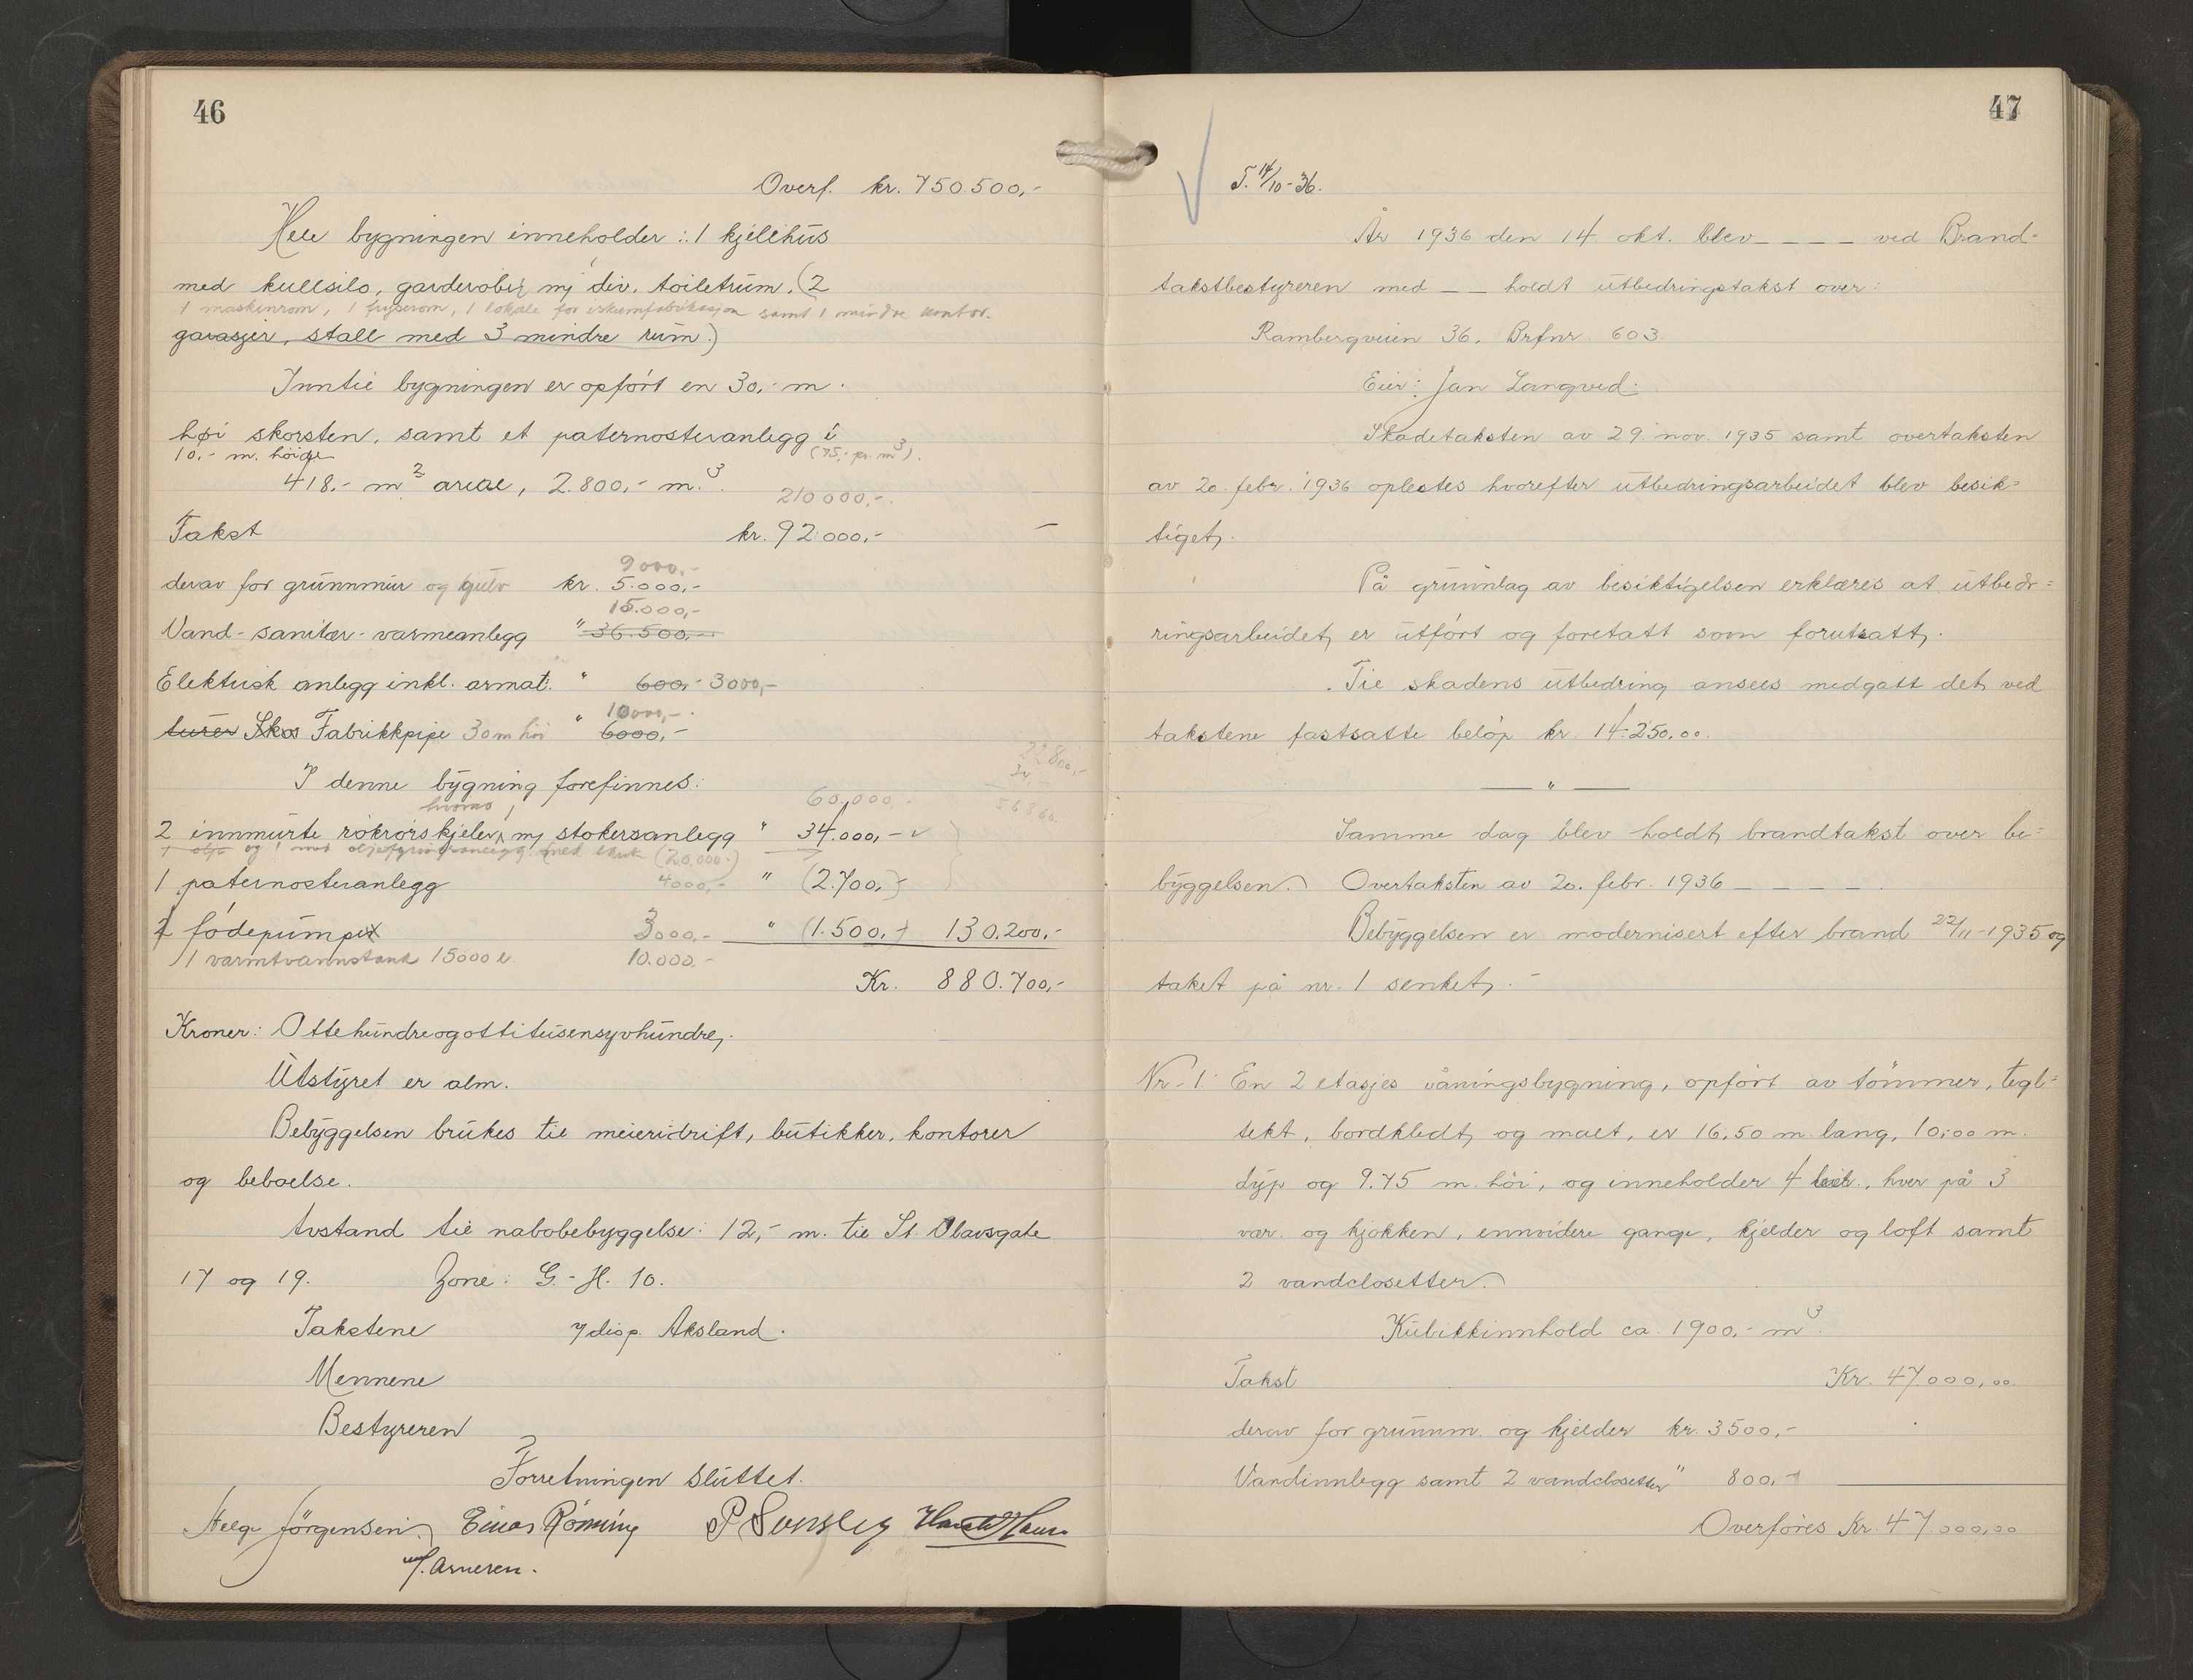 46
Overf. kr. 750.500,-
Hele bygningen inneholder: 1 kjelhus
med kullsilo, garderober m/ div. toiletrum. (2
1 maskinrom, 1 fryserom, 1 lokale for iskremfabrikasjon samt 1 mindre kontor.
garasjer, stall med 3 mindre rum.)
Inntil bygningen er opført en 30,- m.
høi skorsten, samt et paternosteranlegg i
10,- m. høide (75,- pr. m3).
418,- m2 areal, 2.800,- m.3
210000,-
Takst kr. 92.000,-
9000,-
derav for grunnmur og gulv kr. 5.000,-
15.000,-
Vand- sanitær- varmeanlegg " 36.500,-
Elektrisk anlegg inkl. armat. " 600,- 3000,-
10000,-
turer Skor Fabrikkpipe 30 m høi " 6000,-
I denne bygning forefinnes:
hvorav 60.000,-
2 innmurte rökrörskjeler, m/ stokersanlegg " 34.000,-
(20.000,-)
1 paternosteranlegg 4000,- " (2.700,-)
1 födepumper 3000,- " (1.500,-) 130.200,-
1 varmtvannstank 15000 l. 10.000,-
Kr. 880.700,-
Kroner: Ottehundreogottitusensyvhundre,.
Utstyret er alm.
Bebyggelsen brukes til meieridrift, butikker, kontorer
og beboelse.
Avstand til nabobebyggelse: 12,- m. til St. Olavsgate
17 og 19. Zone: G.- H. 10.
Takstene / disp. Aksland.
Mennene
Bestyreren
Forretningen sluttet.
Helge Jörgensen Einar Röming P Svensley
47
T. 14/10-36.
År 1936 den 14 okt. blev _ _ _ _ ved Brand-
takstbestyreren med _ _ holdt utbedringstakst over:
Rambergveien 36. Brfnr. 603.
Eier: Jan Langved.
Skadetaksten av 29. nov. 1935 samt overtaksten
av 20. febr. 1936 oplestes hvorefter utbedringsarbeidet blev besik-
tiget,.
På grunnlag av besiktigelsen erklæres at utbedr-
ringsarbeidet, er utført og foretatt som forutsatt,.
Til skadens utbedring ansees medgatt det, ved
takstene fastsatte beløp kr. 14.250,00.
"
Samme dag blev holdt, brandtakst over be-
byggelsen. Overtaksten av 20. febr. 1936 _ _ _ _.
Bebyggelsen er modernisert efter brand 22/11-1935 og
taket på nr. 1 senket,.
Nr. 1. En 2 etasjes våningsbygning, opført av tömmer, tegl-
tekt, bordkledt, og malt, er 16,50 m. lang, 10,00 m.
dyp og 9.75 m. höi, og inneholder 4 leil., hver på 3
vær. og kjökken, ennvidere gange, kjelder og loft samt
2 vandclosetter.
Kubikkinnhold ca. 1900,- m3.
Takst Kr. 47.000,00.
derav for grunnm. og kjelder kr. 3500,-
Vandinnlegg samt 2 vandclosetter " 800,-
Overföres Kr. 47.000,00